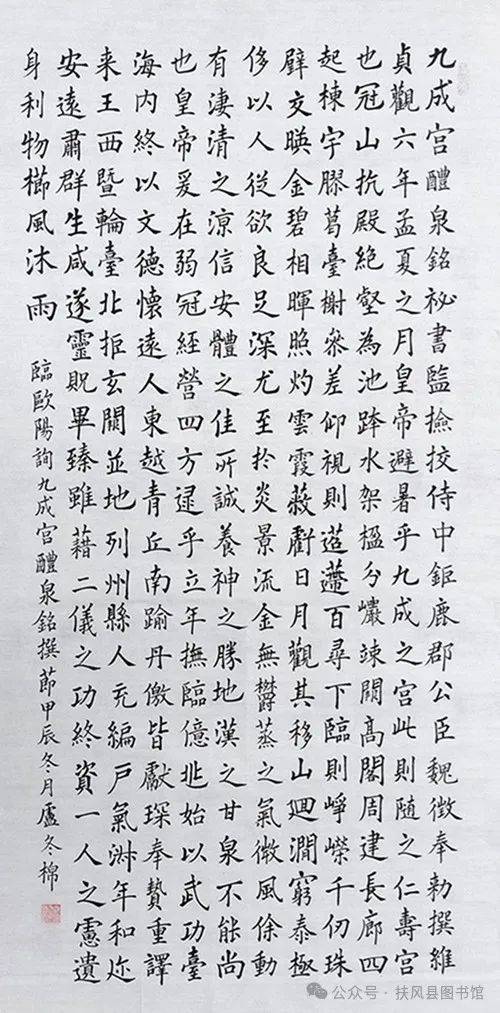 九成宫醴泉銘祕書監撿挍侍中鉅鹿郡公臣魏徴奉勅撰維
貞觀六年孟夏之月皇帝避暑乎九成之宫此則随之仁壽宫
也冠山抗殿絶壑為池跨水架楹分巗竦闕高閣周建長廊四
起棟宇膠葛臺榭叅差仰視則迢遰百尋下臨則崢嶸千仞珠
壁交暎金碧相暉照灼雲霞蔽虧日月觀其移山迴澗窮泰極
侈以人從欲良足深尤至於炎景流金無欝蒸之氣微風徐動
有淒清之涼信安體之佳所誠養神之勝地漢之甘泉不能尚
也皇帝爰在弱冠經營四方逯乎立年撫臨億兆始以武功臺
海内終以文德懷遠人東越青丘南踰丹儌皆獻琛奉贄重譯
来王西暨輪臺北拒玄闕並地列州縣人充編戶氣淑年和迩
安遠肅群生咸遂靈貺畢臻雖藉二儀之功終資一人之慮遺
身利物櫛風沐雨
臨歐陽詢九成宫醴泉銘撰節甲辰冬月盧冬棉
公众号·扶风县图书馆